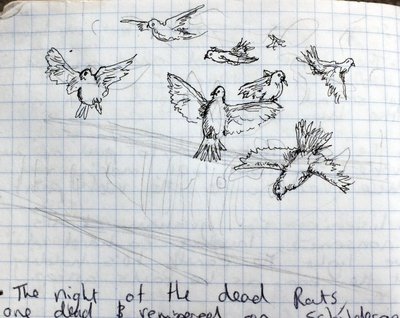 • The night of the dead Rats
one dead & removed on